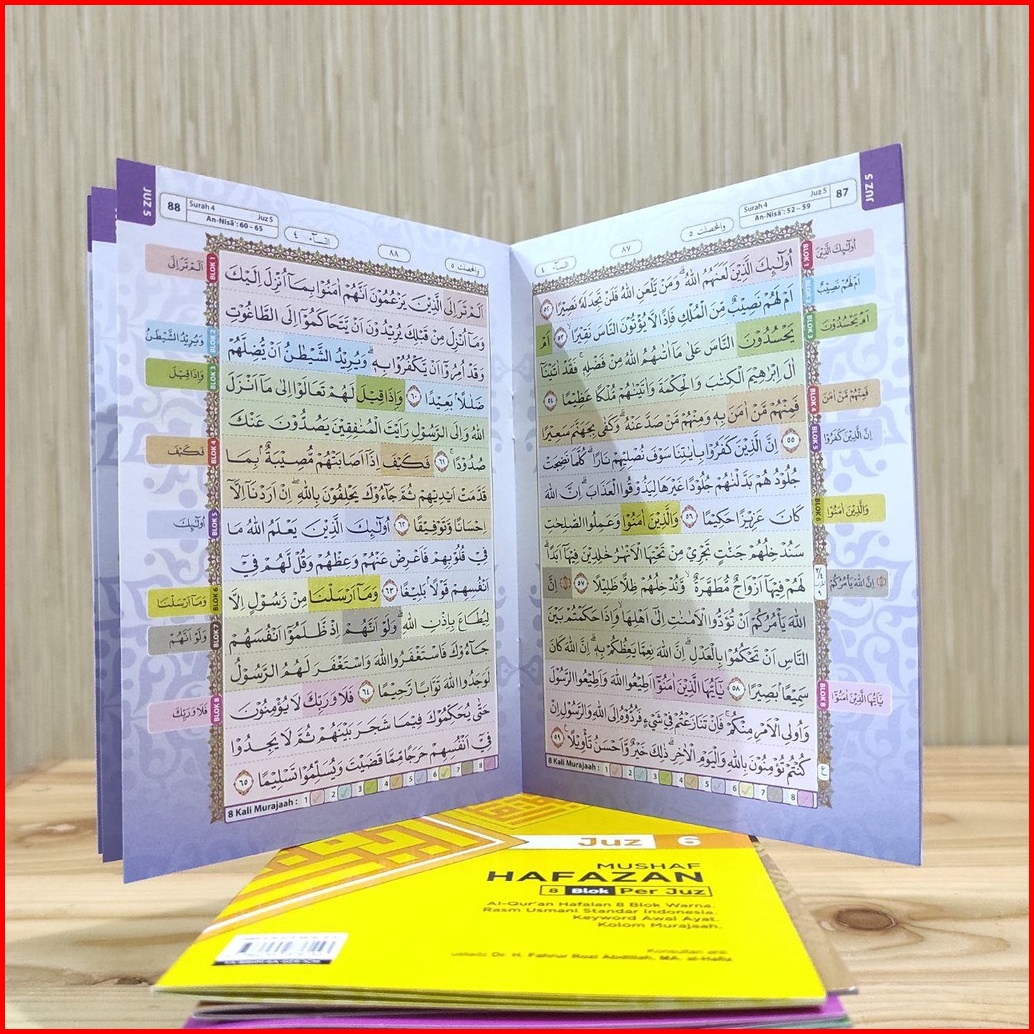 JUZ 5
87
Juz 5
Surah 4
An-Nisā': 52 – 59
والمحصنت ٥
٨٧
النسآء ٤
اُولٰۤىِٕكَ الَّذِيْنَ لَعَنَهُمُ اللّٰهُ ۗوَمَنْ يَّلْعَنِ اللّٰهُ فَلَنْ تَجِدَ لَهٗ نَصِيْرًا ۝٥٢
اَمْ لَهُمْ نَصِيْبٌ مِّنَ الْمُلْكِ فَاِذًا لَّا يُؤْتُوْنَ النَّاسَ نَقِيْرًا ۝٥٣ اَمْ
يَحْسُدُوْنَ النَّاسَ عَلٰى مَآ اٰتٰىهُمُ اللّٰهُ مِنْ فَضْلِهٖۚ فَقَدْ اٰتَيْنَآ
اٰلَ اِبْرٰهِيْمَ الْكِتٰبَ وَالْحِكْمَةَ وَاٰتَيْنٰهُمْ مُّلْكًا عَظِيْمًا ۝٥٤
فَمِنْهُمْ مَّنْ اٰمَنَ بِهٖ وَمِنْهُمْ مَّنْ صَدَّ عَنْهُ ۗوَكَفٰى بِجَهَنَّمَ سَعِيْرًا
۝٥٥ اِنَّ الَّذِيْنَ كَفَرُوْا بِاٰيٰتِنَا سَوْفَ نُصْلِيْهِمْ نَارًاۗ كُلَّمَا نَضِجَتْ
جُلُوْدُهُمْ بَدَّلْنٰهُمْ جُلُوْدًا غَيْرَهَا لِيَذُوْقُوا الْعَذَابَۗ اِنَّ اللّٰهَ
كَانَ عَزِيْزًا حَكِيْمًا ۝٥٦ وَالَّذِيْنَ اٰمَنُوْا وَعَمِلُوا الصّٰلِحٰتِ
سَنُدْخِلُهُمْ جَنّٰتٍ تَجْرِيْ مِنْ تَحْتِهَا الْاَنْهٰرُ خٰلِدِيْنَ فِيْهَآ اَبَدًاۗ
لَهُمْ فِيْهَآ اَزْوَاجٌ مُّطَهَّرَةٌ ۙ وَّنُدْخِلُهُمْ ظِلًّا ظَلِيْلًا ۝٥٧ ۞ اِنَّ
اللّٰهَ يَأْمُرُكُمْ اَنْ تُؤَدُّوا الْاَمٰنٰتِ اِلٰٓى اَهْلِهَاۙ وَاِذَا حَكَمْتُمْ بَيْنَ
النَّاسِ اَنْ تَحْكُمُوْا بِالْعَدْلِ ۗ اِنَّ اللّٰهَ نِعِمَّا يَعِظُكُمْ بِهٖ ۗ اِنَّ اللّٰهَ كَانَ
سَمِيْعًاۢ بَصِيْرًا ۝٥٨ يٰٓاَيُّهَا الَّذِيْنَ اٰمَنُوْٓا اَطِيْعُوا اللّٰهَ وَاَطِيْعُوا الرَّسُوْلَ
وَاُولِى الْاَمْرِ مِنْكُمْۚ فَاِنْ تَنَازَعْتُمْ فِيْ شَيْءٍ فَرُدُّوْهُ اِلَى اللّٰهِ وَالرَّسُوْلِ اِنْ
كُنْتُمْ تُؤْمِنُوْنَ بِاللّٰهِ وَالْيَوْمِ الْاٰخِرِۗ ذٰلِكَ خَيْرٌ وَّاَحْسَنُ تَأْوِيْلًا ۝٥٩
BLOK 1 اُولٰۤىِٕكَ الَّذِيْنَ
اَمْ لَهُمْ نَصِيْبٌ
BLOK 3 اَمْ يَحْسُدُوْنَ
BLOK 4 فَمِنْهُمْ مَّنْ اٰمَنَ
BLOK 5 اِنَّ الَّذِيْنَ كَفَرُوْا
BLOK 6 وَالَّذِيْنَ اٰمَنُوْا
۞ اِنَّ اللّٰهَ يَأْمُرُكُمْ
BLOK 8 يٰٓاَيُّهَا الَّذِيْنَ اٰمَنُوْٓا
8 Kali Murajaah : 1 2 3 4 5 6 7 8
JUZ 5
88
Surah 4
Juz 5
An-Nisā' : 60 – 65
والمحصنت ٥
٨٨
النسآء ٤
اَلَمْ تَرَ اِلَى الَّذِيْنَ يَزْعُمُوْنَ اَنَّهُمْ اٰمَنُوْا بِمَآ اُنْزِلَ اِلَيْكَ
وَمَآ اُنْزِلَ مِنْ قَبْلِكَ يُرِيْدُوْنَ اَنْ يَّتَحَاكَمُوْٓا اِلَى الطَّاغُوْتِ
وَقَدْ اُمِرُوْٓا اَنْ يَّكْفُرُوْا بِهٖۗ وَيُرِيْدُ الشَّيْطٰنُ اَنْ يُّضِلَّهُمْ
ضَلٰلًاۢ بَعِيْدًا ۝٦٠ وَاِذَا قِيْلَ لَهُمْ تَعَالَوْا اِلٰى مَآ اَنْزَلَ
اللّٰهُ وَاِلَى الرَّسُوْلِ رَاَيْتَ الْمُنٰفِقِيْنَ يَصُدُّوْنَ عَنْكَ
صُدُوْدًاۚ ۝٦١ فَكَيْفَ اِذَآ اَصَابَتْهُمْ مُّصِيْبَةٌ ۢبِمَا
قَدَّمَتْ اَيْدِيْهِمْ ثُمَّ جَاۤءُوْكَ يَحْلِفُوْنَ بِاللّٰهِ ۖاِنْ اَرَدْنَآ اِلَّآ
اِحْسَانًا وَّتَوْفِيْقًا ۝٦٢ اُولٰۤىِٕكَ الَّذِيْنَ يَعْلَمُ اللّٰهُ مَا
فِيْ قُلُوْبِهِمْ فَاَعْرِضْ عَنْهُمْ وَعِظْهُمْ وَقُلْ لَّهُمْ فِيْٓ
اَنْفُسِهِمْ قَوْلًاۢ بَلِيْغًا ۝٦٣ وَمَآ اَرْسَلْنَا مِنْ رَّسُوْلٍ اِلَّا
لِيُطَاعَ بِاِذْنِ اللّٰهِ ۗوَلَوْ اَنَّهُمْ اِذْ ظَّلَمُوْٓا اَنْفُسَهُمْ
جَاۤءُوْكَ فَاسْتَغْفَرُوا اللّٰهَ وَاسْتَغْفَرَ لَهُمُ الرَّسُوْلُ
لَوَجَدُوا اللّٰهَ تَوَّابًا رَّحِيْمًا ۝٦٤ فَلَا وَرَبِّكَ لَا يُؤْمِنُوْنَ
حَتّٰى يُحَكِّمُوْكَ فِيْمَا شَجَرَ بَيْنَهُمْ ثُمَّ لَا يَجِدُوْا
فِيْٓ اَنْفُسِهِمْ حَرَجًا مِّمَّا قَضَيْتَ وَيُسَلِّمُوْا تَسْلِيْمًا ۝٦٥
BLOK 1 اَلَمْ تَرَ اِلَى
BLOK 2 وَيُرِيْدُ الشَّيْطٰنُ
BLOK 3 وَاِذَا قِيْلَ
BLOK 4 فَكَيْفَ
BLOK 5 اُولٰۤىِٕكَ
BLOK 6 وَمَآ اَرْسَلْنَا
BLOK 7 وَلَوْ اَنَّهُمْ
BLOK 8 فَلَا وَرَبِّكَ
8 Kali Murajaah : 1 2 3 4 5 6 7 8
Juz 6
MUSHAF
HAFAZAN
8 Blok Per Juz
Al-Qur'an Hafalan 8 Blok Warna.
Rasm Usmani Standar Indonesia.
Keyword Awal Ayat.
Kolom Murajaah.
Ustadz Dr. H. Fathur Rozi Abdillah, MA. al-Hafiz